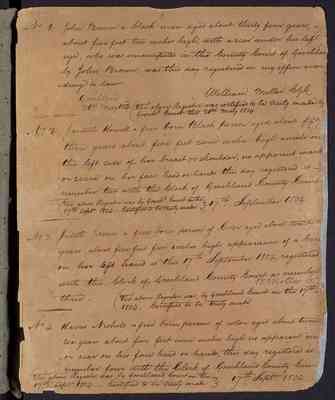 No 1. John Brown a black man aged about thirty four years,
about five feet two inches high, with a scar under his left
eye, who was emancipated in the County Court of Goochland
by John Brown was this day registered in my office accor
ding to law.
William Miller Clk
The above Register was certified to be truly made by
Goochland Court
No 2. a free born Black person aged about fifty
three years about five feet seven inches high
the left side of her breast or shoulder, no apparent mark
or scar on her face head or hands this day registered as
number two with the Clerk of Goochland County Court.
The above Register was by Goochland Court
17th Septr 1804. Certified to be truly made 17th September 1804
No 3. a free born person of Color aged about
years about five feet five inches high appearance of a
on her left hand is this 17th September 1804 registered
with the Clerk of Goochland County Court as number
three
The above Register was by Goochland Court on the 17th
1804. Certified to be truly made
No 4. Nichols a free born person of color aged about
years about five feet inches high no apparent
or scar on her face head or hands, this day registered as
number four with the Clerk of Goochland County Court
The above Register was by Goochland Court on the
17th Septr 1804. Certified to be truly made 17th Septr 1804